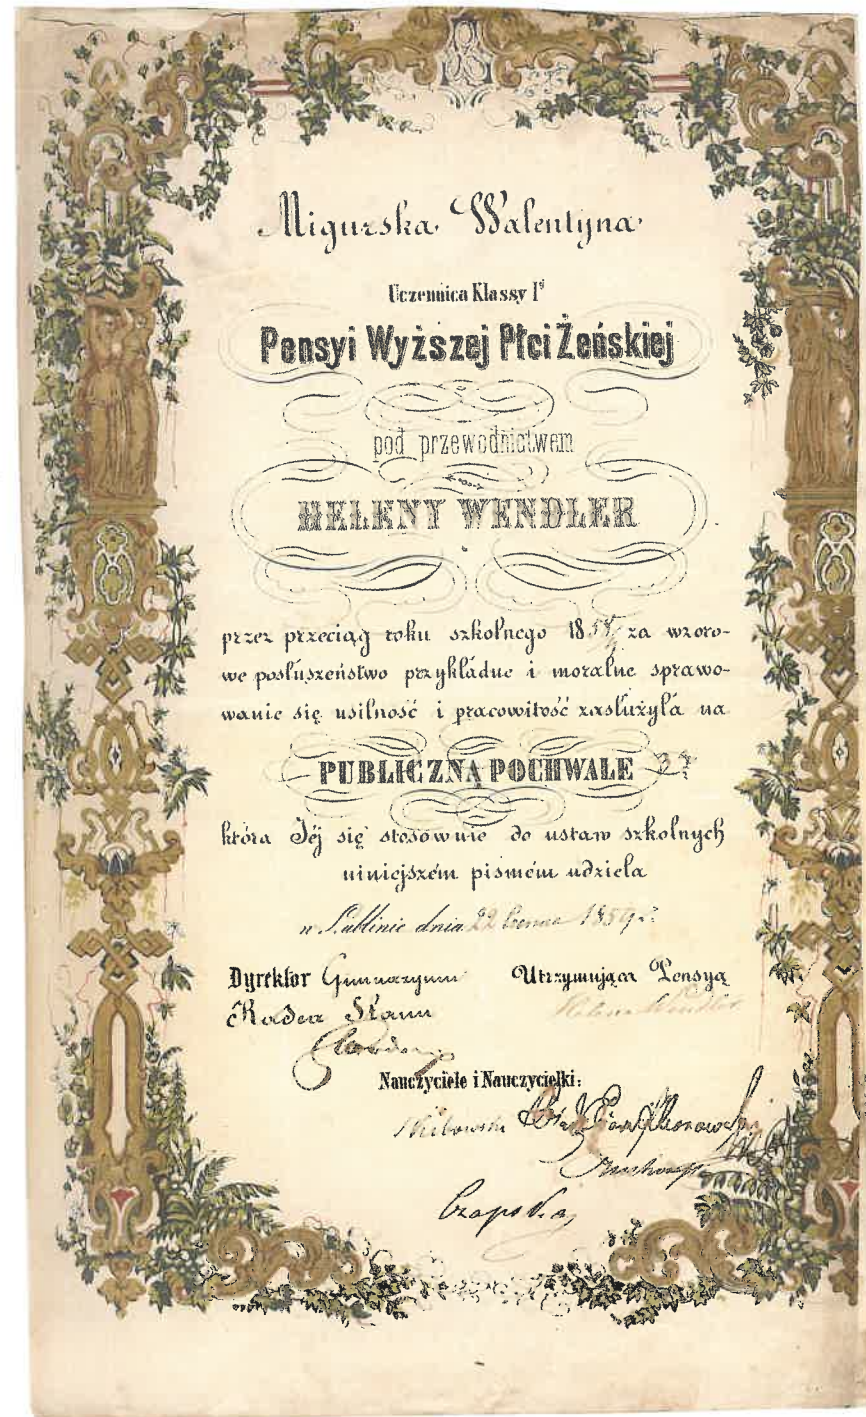 Migurska Walentyna
Uczennica Klassy I
Pensyi Wyższej Płci Żeńskiej
pod przewodnictwem
HELENY WENDLER
przez przeciąg roku szkolnego 185 za wzoro-
we posłuszeństwo przykładne i moralne sprawo-
wanie się usilność i pracowitość zasłużyła na
PUBLICZNĄ POCHWAŁE
która Jéj się stosownie do ustaw szkolnych
niniejszém pismém udziela
w Lublinie dnia 22 Czerwca 1859 r.
Dyrektor Gimnazyum Utrzymująca Pensyą
Radca Stanu Helena Wendler
Nauczyciele i Nauczycielki:
Czapska